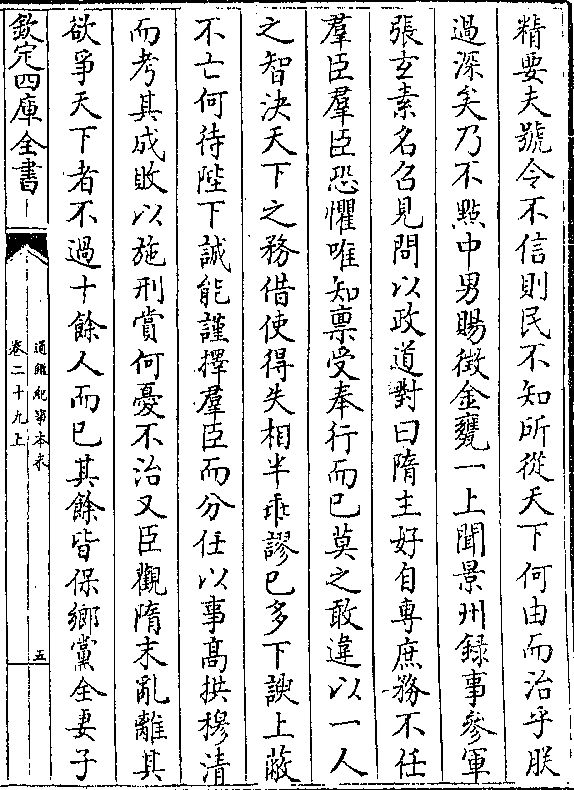 精要夫號令不信則民不知所從天下何由而治乎朕
過深矣乃不點中男賜徵金甕一上聞景州録事參軍
張玄素名召見問以政道對曰隋主好自專庶務不任
羣臣羣臣恐懼唯知禀受奉行而已莫之敢違以一人
之智決天下之務借使得失相半乖謬已多下諛上蔽
不亡何待陛下誠能謹擇羣臣而分任以事高拱穆清
而考其成敗以施刑賞何憂不治又臣觀隋末亂離其
欲爭天下者不過十餘人而已其餘皆保鄉黨全妻子
欽定四庫全書
通鑑紀事本末
卷二十九上
五